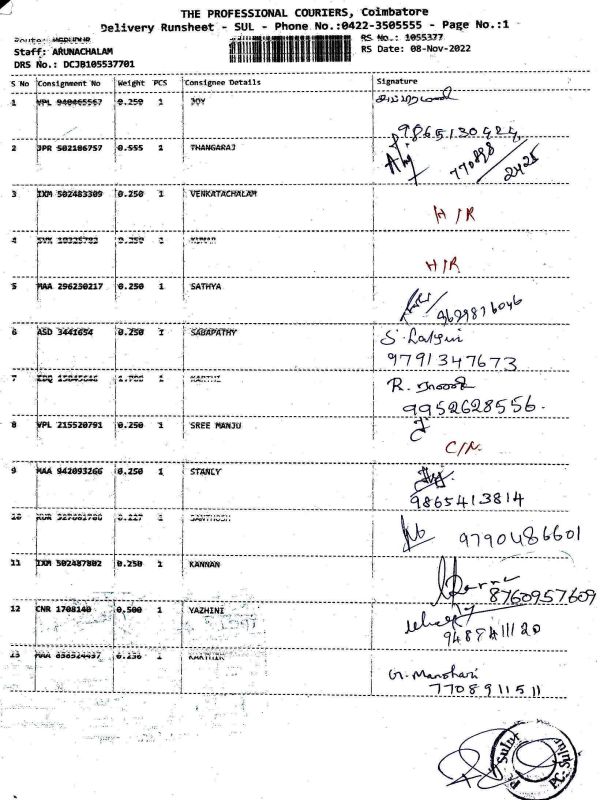 THE PROFESSIONAL COURIERS, Coimbatore
Delivery Runsheet - SUL - Phone No.:0422-3505555 - Page No.:1
Staff: ARUNACHALAM
DRS No.: DCJB105537701
RS No.: 1055377
RS Date: 08-Nov-2022
S No Consignment No Weight PCS Consignee Details Signature
1 VPL 940465567 0.250 1 JOY
9865130424
2 JPR 502186757 0.555 1 THANGARAJ
770898
2425
3 IXM 502483309 0.250 1 VENKATACHALAM
H/R
4 1 KUMAR
H/R
5 MAA 296230217 0.250 1 SATHYA
9629876046
6 ASD 3441654 0.250 1 SABAPATHY
9791347673
7 1 KARTHI
R.
9952628556.
8 VPL 215520791 0.250 1 SREE MANJU
C/N.
9 MAA 942093266 0.250 1 STANLY
9865413814
10 1 SANTHOSH
9790486601
11 IXM 502487802 0.250 1 KANNAN
8760957609
12 CNR 1708140 0,500 1 YAZHINI
9489411120
13 1 KARTHIK
G. Manohari
7708911511
P.C. Sulur